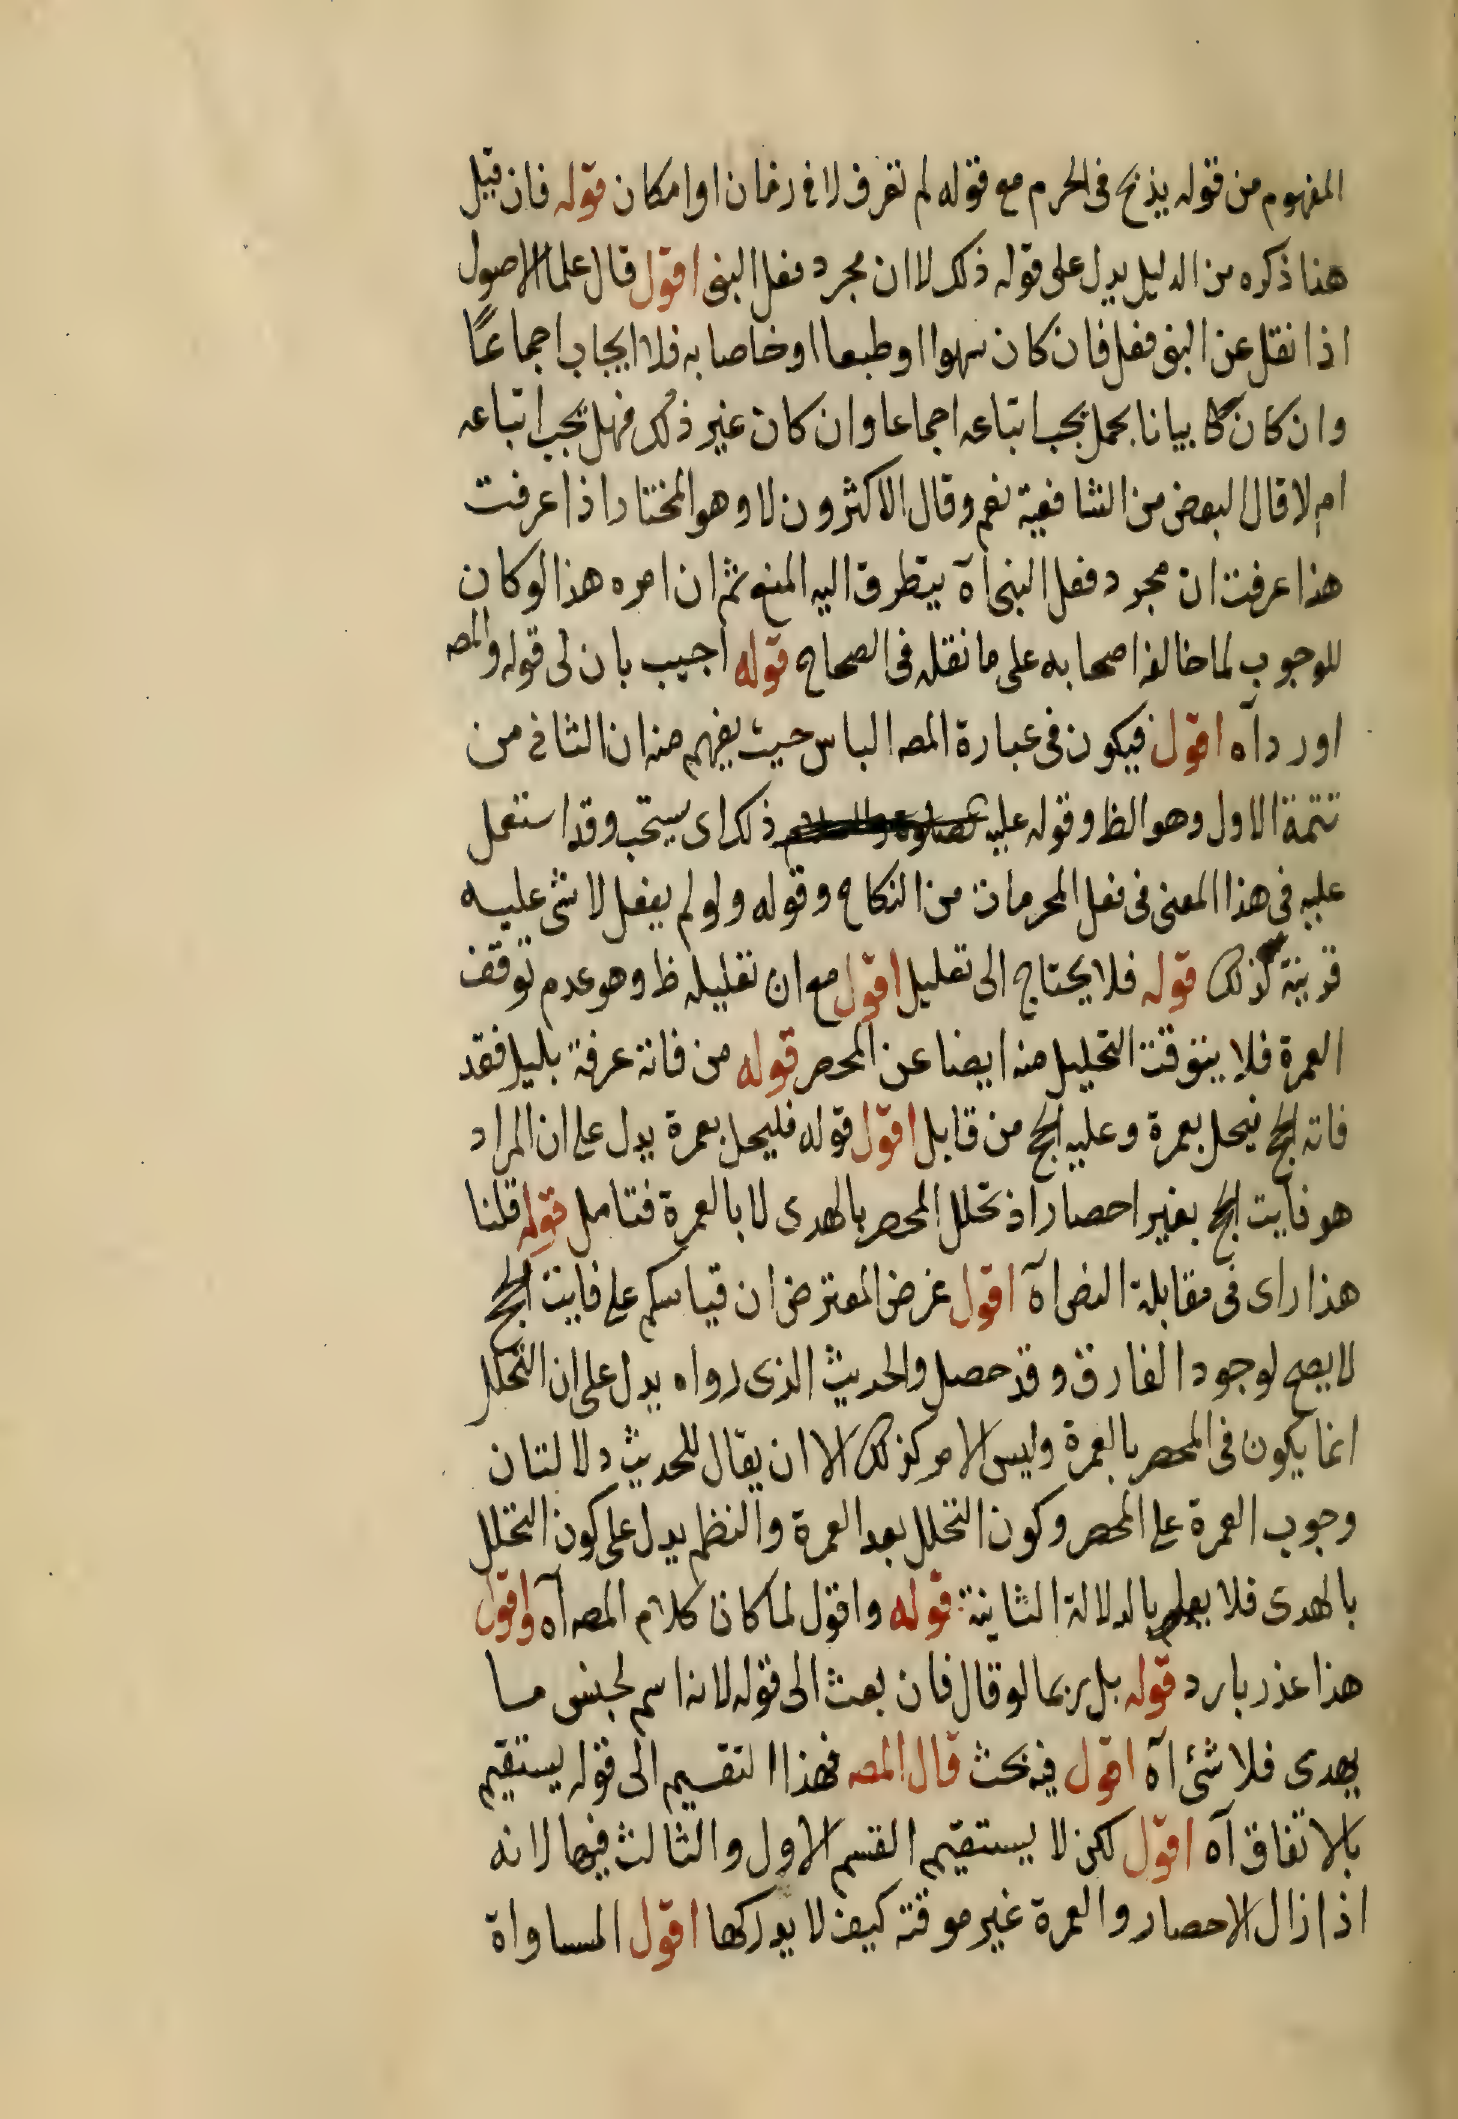 المفهوم من قوله يذبح فى الحرم مع قوله لم تعرف لا فى زمان او امكان قوله فان قيل
هذا ذكره من الدليل يدل على قوله ذلك لا ان مجرد فعل النبى اقول قال علما الاصول
اذا نقل عن النبى فعل فان كان سهوا او طبعا او خاصا به فلا ايجاب اجماعًا
وان كان كا بيانا بحمل يجب اتباعه اجماعا وان كان غير ذلك فهل يجب اتباعه
ام لا قال البعض من الشافعية نعم وقال الاكثرون لا وهو المختار اذا عرفت
هذا عرفت ان مجرد فعل النبى اه يتطرق اليه المنع ثم ان امره هذا لو كان
للوجوب لما خالفه اصحابه على ما نقله فى الصحاح قوله اجيب بان لى قوله والمصه
اورد آه اقول فيكون فى عبارة المصه الباس حيث يفهم منه ان الثانى من
تتمة الاول وهو الظ وقوله عليه ذلك اى يستحب وقد استعمل
عليه فى هذا المعنى فى فعل المحرمات من النكاح وقوله ولو لم يفعل لا شئ عليه
قرينة كذلك قوله فلا يحتاج الى تعليل اقول مع ان تعليله ظ وهو عدم توقف
العمرة فلا يتوقت التحليل منه ايضا عن المحصر قوله من فاته عرفة بليل فقد
فاته الحج فيحل بعمرة وعليه الحج من قابل اقول قوله فليحل بعمرة يدل على ان المراد
هو فايت الحج بغير احصار اذ تحلل المحصر بالهدى لا بالعمرة فتامل قوله قلنا
هذا راى فى مقابلة النص اه اقول غرض المعترض ان قياسكم على فايت الحج
لا يصح لوجود الفارق وقد حصل والحديث الذى رواه يدل على ان التحلل
انما يكون فى المحصر بالعمرة وليس الامر كذلك الا ان يقال للحديث دلالتان
وجوب العمرة على المحصر وكون التحلل بعد العمرة والنظم يدل على كون التحلل
بالهدى فلا يعلم بالدلالة الثانية قوله واقول لما كان كلام المصه آه واقول
هذا عذر بارد قوله بل ربما لو قال فان بعث الى قوله لانه اسم لجنس مــا
يهدى فلا شئ آه اقول فيه بحث قال المصه فهذا التقسيم الى قوله يستقيم
بالاتفاق آه اقول لكن لا يستقيم القسم الاول والثالث فيها لانه
اذا زال الاحصار والعمرة غير موقته كيف لا يدركها اقول المساواة